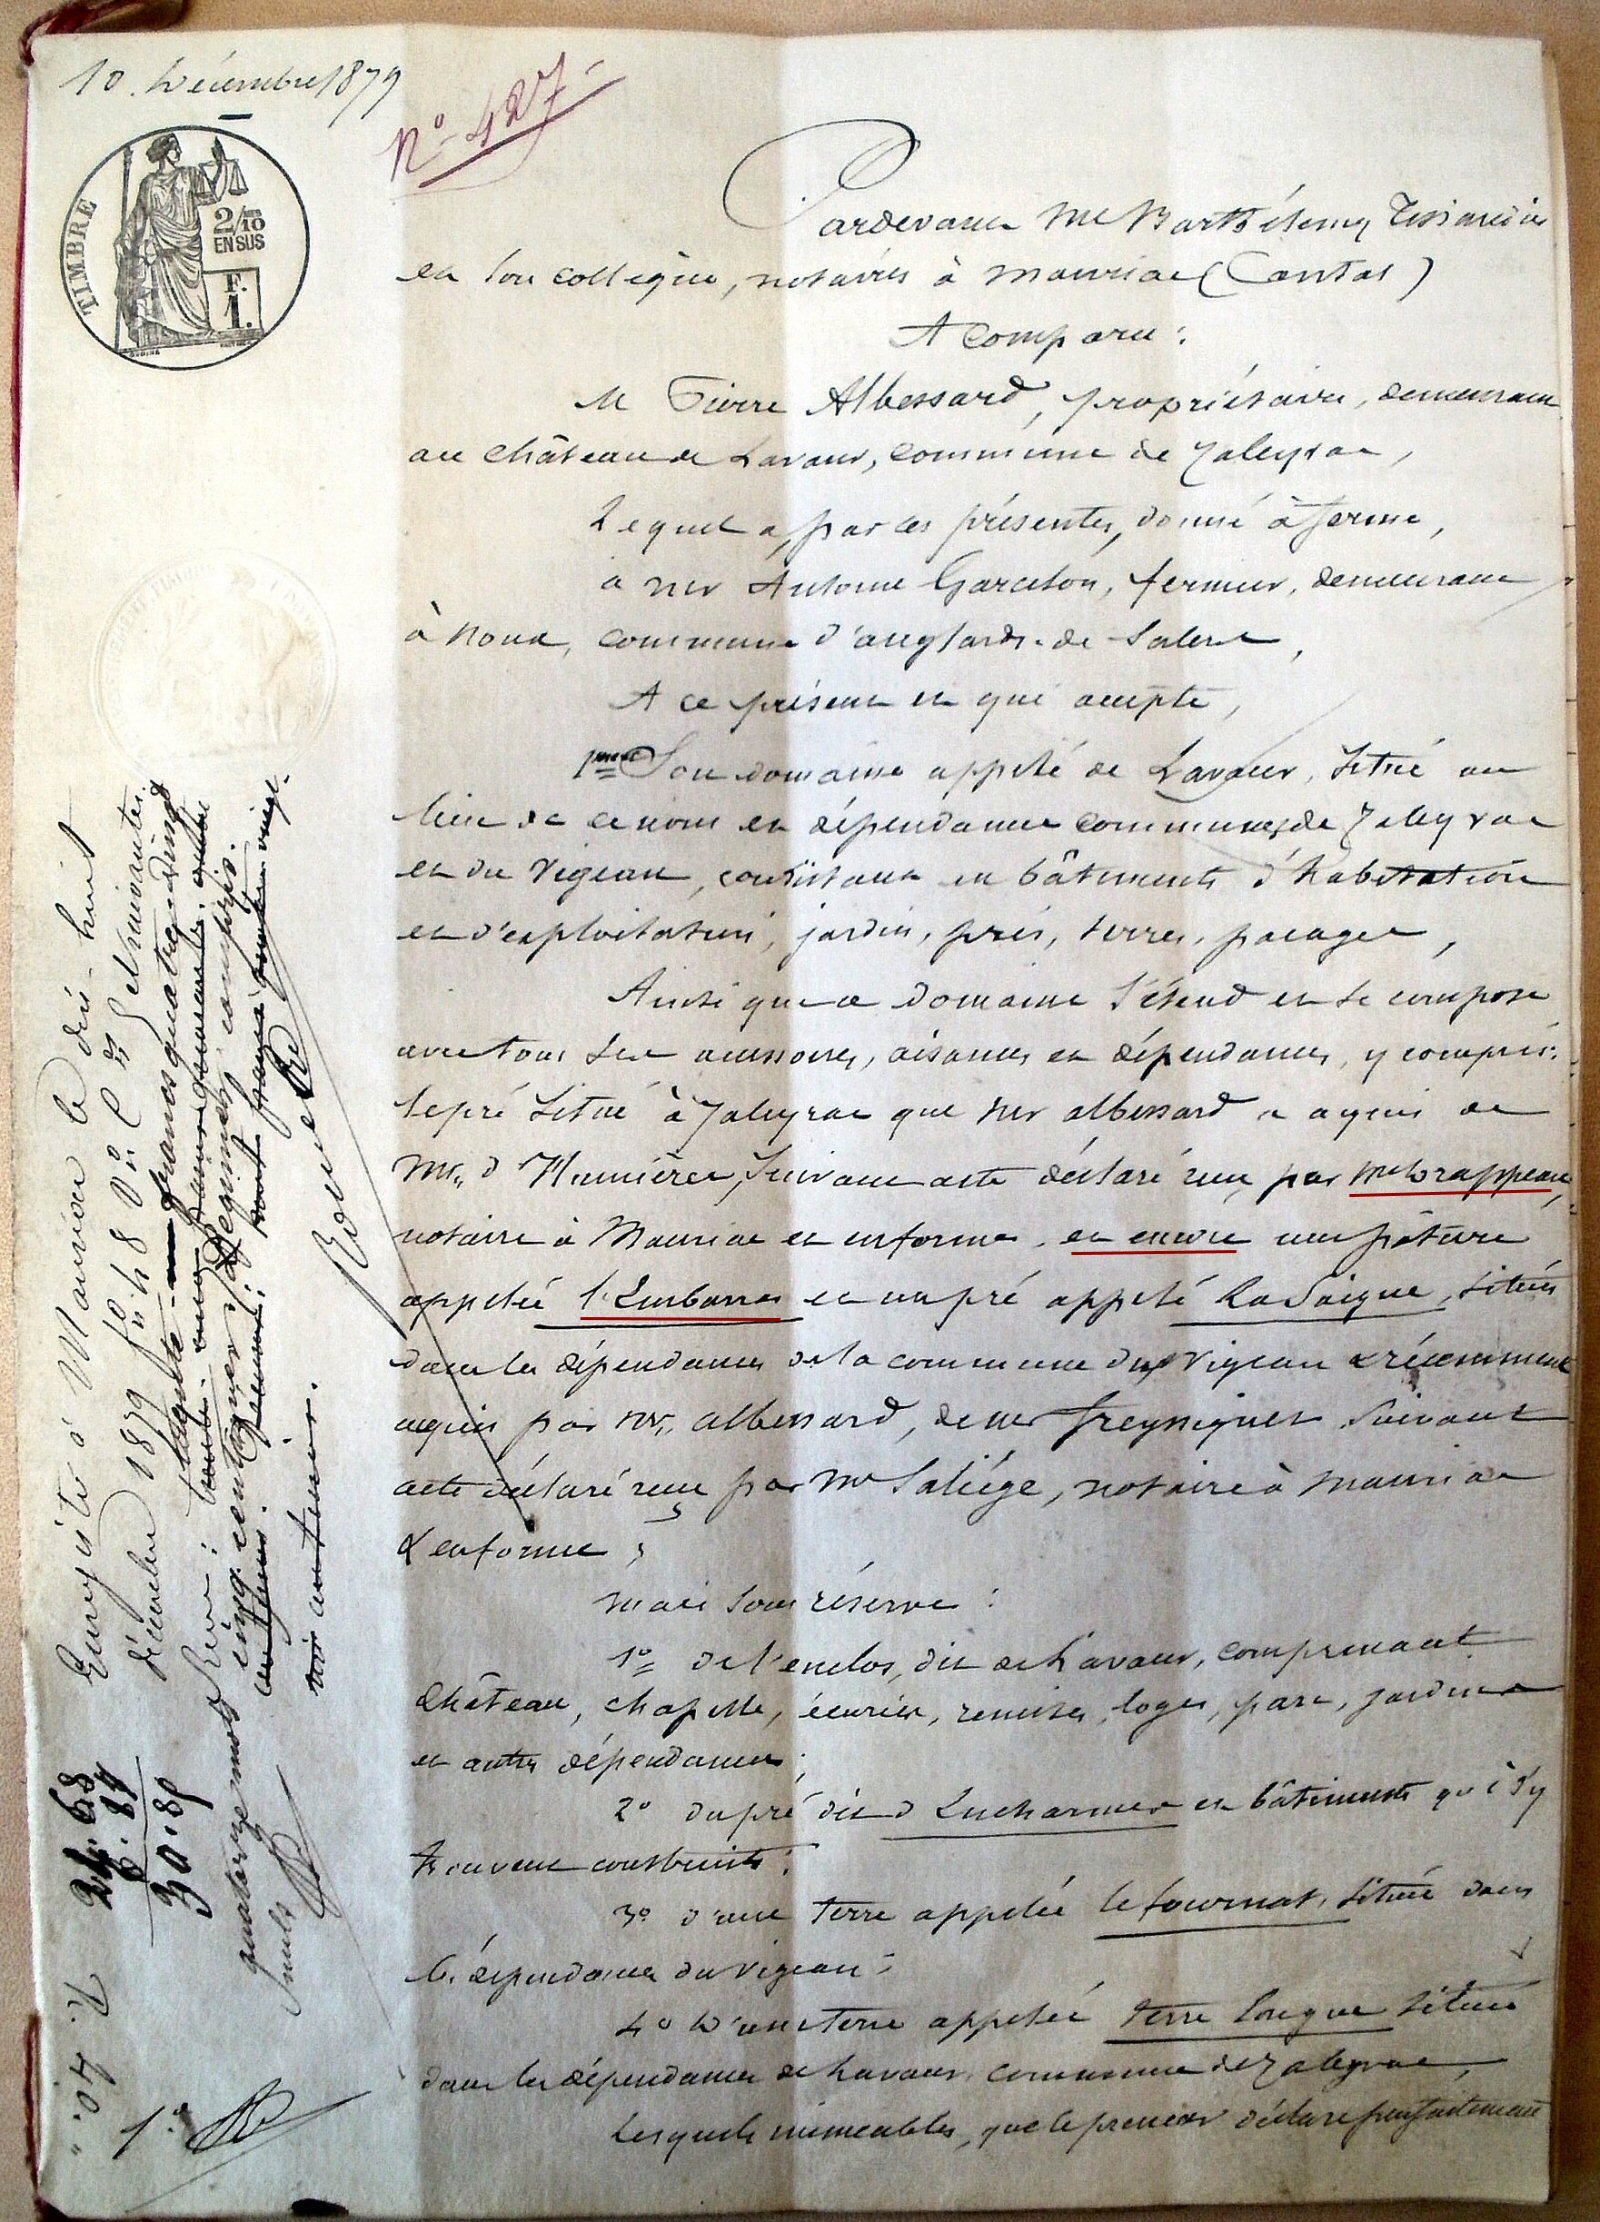 10 Décembre 1879
N° 427
TIMBRE
2/10
EN SUS
F.
1.
Pardevant Me Barthélemy
et son collègue, notaires à Mauriac (Cantal)
A Comparu :
M Pierre Albessard, propriétaire, demeurant
au château de Lavaur, commune de Jaleyrac,
Lequel a, par ces présentes, donné à ferme,
à Mr Antoine Garcelon, fermier, demeurant
à Noux, commune d'anglards-de Salers,
A ce présent et qui accepte,
Son domaine appelé de Lavaur, situé au
lieu de ce nom et dépendances communes de Jaleyrac
et du Vigean, consistant en bâtiments d'habitation
et d'exploitation, jardin, prés, terres, pacages,
Ainsi que ce domaine s'étend et se compose
avec tous ses accessoires, aisances et dépendances, y compris :
le pré situé à Jaleyrac que Mr albessard a acquis de
Mr d'Humières, suivant acte déclaré reçu par Me
notaire à Mauriac et en forme, et encore une pâture
appelée et un pré appelé La Saigne, situés
dans les dépendances de la commune du Vigean & récemment
acquis par Mr albessard, de Mr Freyssignes suivant
acte déclaré reçu par Me Saliége, notaire à Mauriac
& en forme ;
mais sous réserve :
1° de l'enclos, dit de Lavaur, comprenant
Château, chapelle, écuries, remises, loges, parc, jardins
et autres dépendances ;
2° du pré dit d et bâtiments qui s'y
trouvent construits ;
3° d'une terre appelée le fournat, située dans
les dépendances du Vigean ;
4° D'une terre appelée terre longue située
dans les dépendances de Lavaur, commune de Jaleyrac,
Lesquels immeubles, que le preneur déclare parfaitement
Enregistré à Mauriac le dix-huit
décembre 1879 f° 48 V° C 2 & suivantes.
Reçu :
cinq centimes décimes compris.
voir antérieur.
24.68
6.17
30.85
quatorze mots
nuls
1°